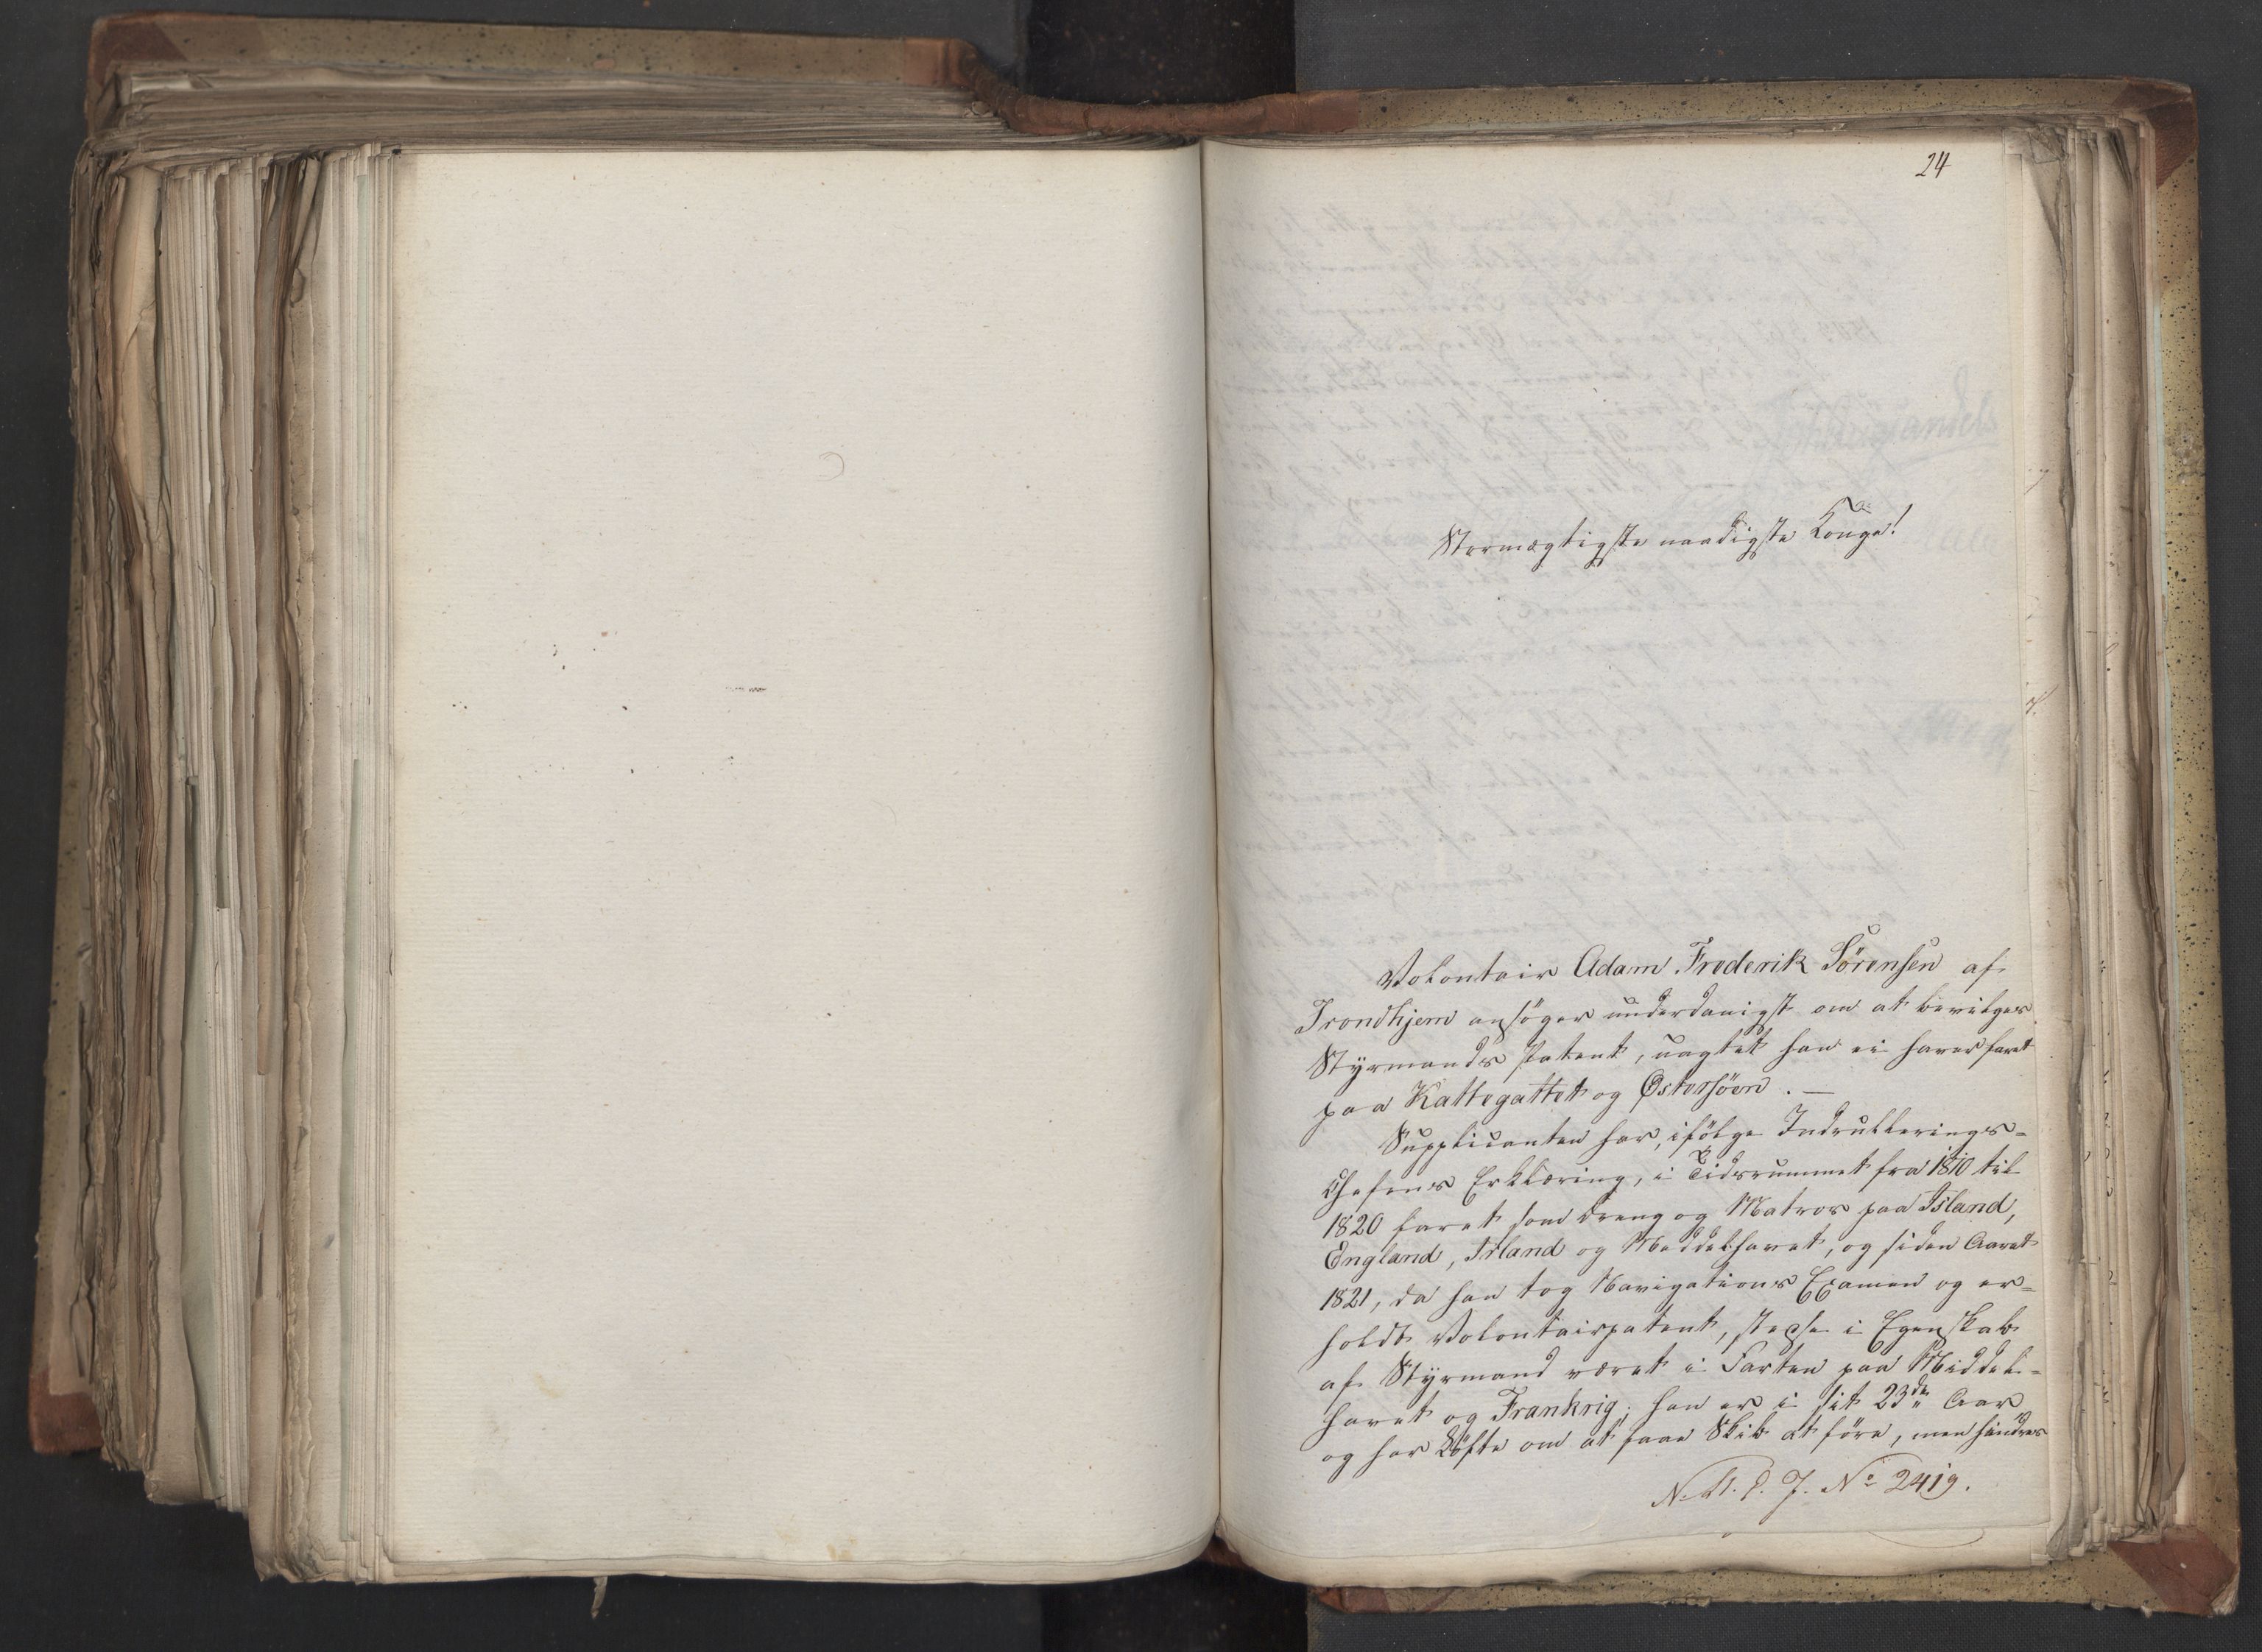 24
Stormægtigste naadigste Konge!
Volontair Adam Frederik Sörensen af
Trondhjem ansöger underdanigst om at bevilges
Styrmands Patent, uagtet han ei haver faret
paa Kattegattet og Østersöen. —
Supplicanten har, ifölge Indrullerings-
Chefens Erklæring, i Tidsrummet fra 1810 til
1820 faret som Dreng og Matros paa Island,
England, Irland og Middelhavet, og siden Aaret
1821, da han tog Navigations Examen og er-
holdt Volontairpatent, stedse i Egenskab
af Styrmand været i Farten paa Middel-
havet og Frankrig; han er i sit 23de Aar
og har Löfte om at faae Skib at före, men hindres
N. A. D. J. No 2419.